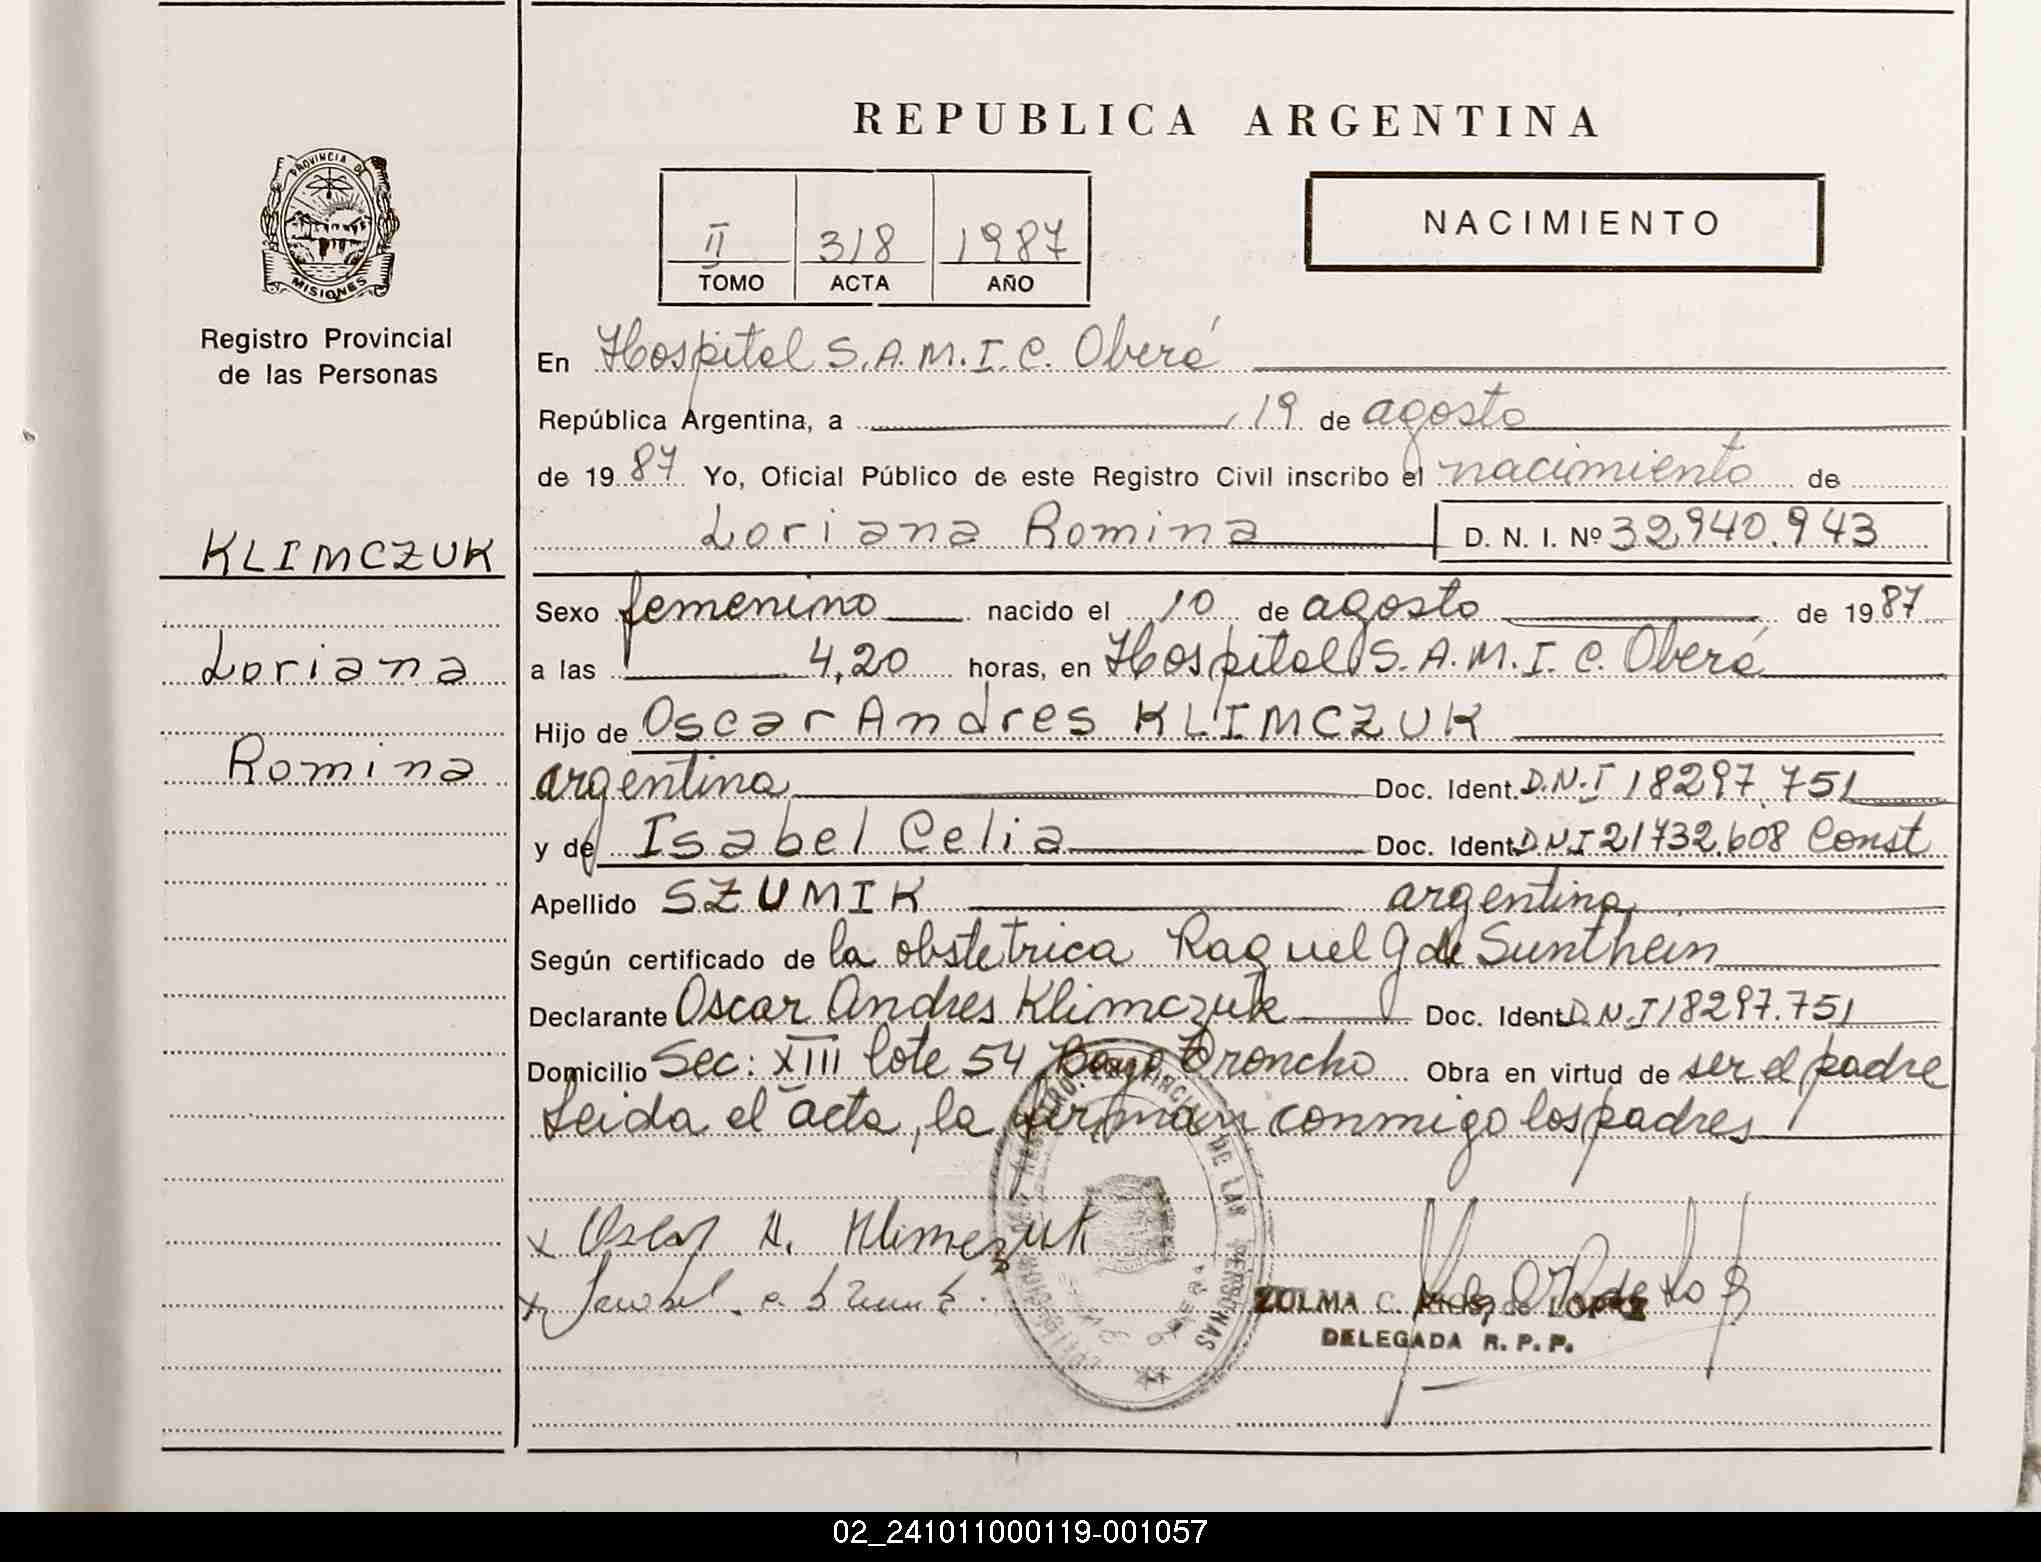 REPUBLICA ARGENTINA
PROVINCIA DE
MISIONES
Registro Provincial
de las Personas
II 318 1987
TOMO ACTA AÑO
NACIMIENTO
En Hospital S.A.M.I.C. Oberá
República Argentina, a 19 de agosto
de 1987 Yo, Oficial Público de este Registro Civil inscribo el nacimiento de
Loriana Romina D. N. I. Nº 32,940.943
KLIMCZUK
Loriana
Romina
Sexo femenino nacido el 10 de agosto de 1987
a las 4,20 horas, en Hospital S.A.M.I.C. Oberá
Hijo de Oscar Andres KLIMCZUK
argentina Doc. Ident. D.N.I 18297.751
y de Isabel Celia Doc. Ident. D.N.I 21732.608 Const
Apellido SZUMIK argentina
Según certificado de la obstetrica Raquel G de Sunthein
Declarante Oscar Andres Klimczuk Doc. Ident. D.N.I 18297.751
Domicilio Sec: XIII lote 54 Obra en virtud de ser el padre
Leida el acta, la firman conmigo los padres
x Oscar A. Klimczuk
DE LAS PERSONAS
ZULMA C. de LOPEZ
DELEGADA R. P. P.
02_241011000119-001057